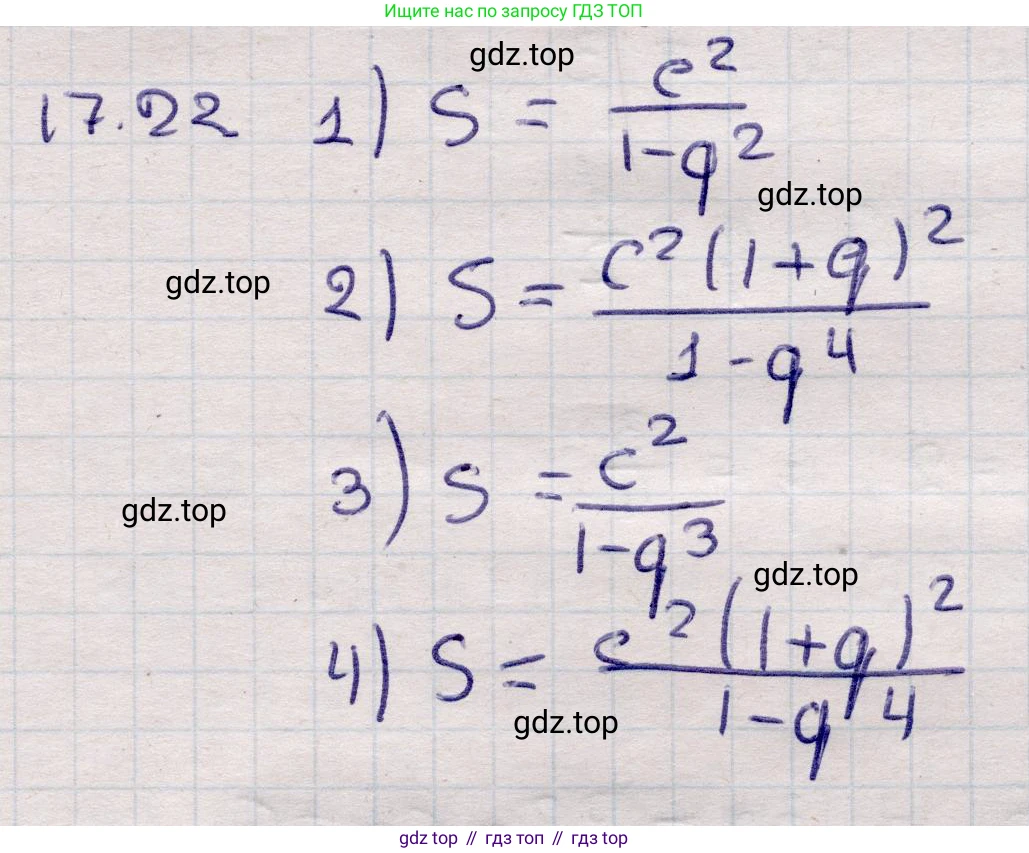 Ищите нас по запросу ГДЗ ТОП
gdz.top
17.22 1) S = c²/(1-q²)
gdz.top
gdz.top
2) S = c²(1+q)²/(1-q⁴)
gdz.top
3) S = c²/(1-q³)
gdz.top
4) S = c²(1+q)²/(1-q⁴)
gdz.top
gdz top // гдз топ // gdz top